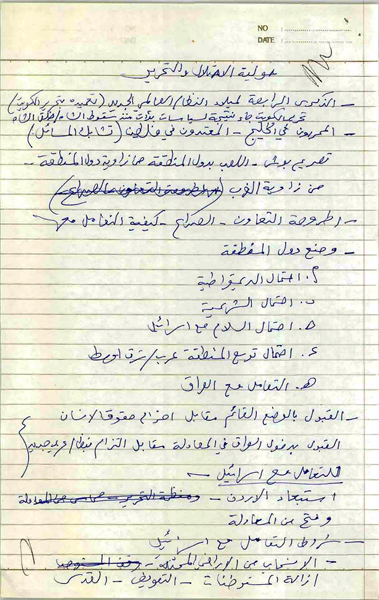 NO :
DATE :
حولية الاحتلال والتحرير
- الذكرى الرابعة لميلاد النظام العالمي الجديد (تجميده بتحرير الكويت)
تحرير الكويت جاء نتيجة لسياسات بدأت منذ سقوط الشاه
- الممرون في الخليج - المعتدون في فلسطين (تشابك المسائل)
تصريح بوش - اللعب بدول المنطقة من زاوية دول المنطقة -
من زاوية الغرب
- اطروحة التعاون - الصراع - كيفية التعامل مع
- وضع دول المنطقة
أ. احتمال الديمقراطية
ب. احتمال الشرعية
ج. احتمال السلام مع اسرائيل
د. احتمال توسع المنطقة عرب/شرق اوسط
هـ. التعامل مع العراق
- القبول بالوضع القائم مقابل احترام حقوق الانسان
القبول بدخول العراق في المعادلة مقابل التزام نظام عربي جديد
للتعامل مع اسرائيل -
استبعاد الاردن - ومنظمة التحرير
وفتح من المعادلة
- شروط التعامل مع اسرائيل
- الانسحاب من الاراضي المحتلة -
ازالة المستوطنات - التعويض - القدس